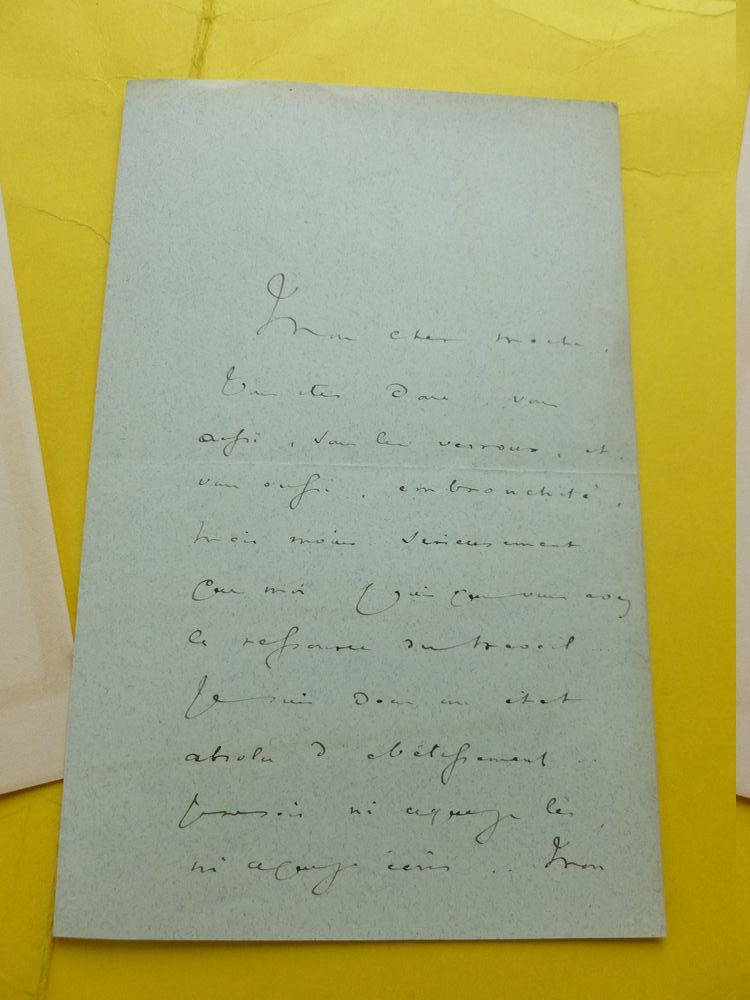 Mon cher maître,
Vous êtes donc, vous
aussi, sous les verrous, et
vous aussi, embronchité,
mais moins sérieusement
que moi puisque vous avez
la ressource du travail...
Je suis dans un état
absolu d'abêtissement...
Je ne sais ni ce que je lis,
ni ce que j'écris... Mon